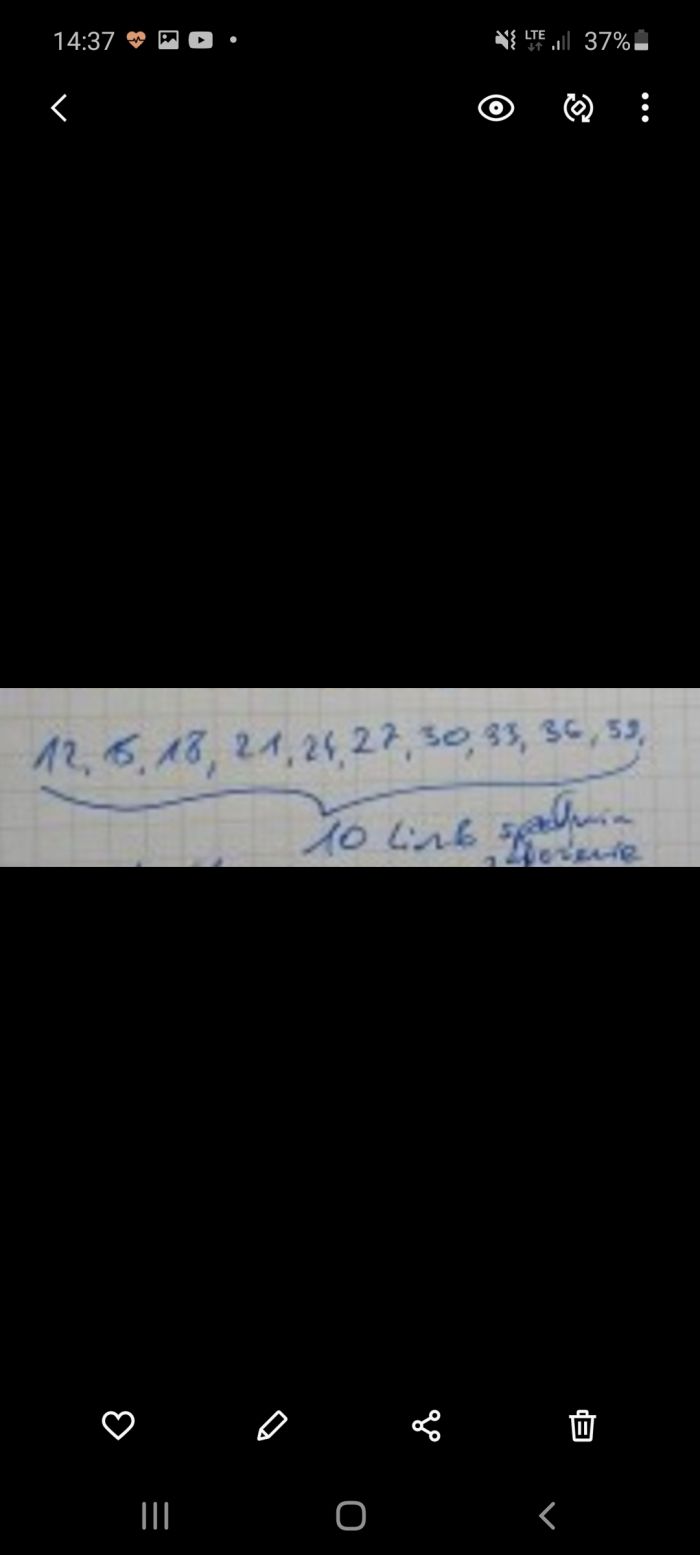 14:37 LTE 37%
12, 15, 18, 21, 24, 27, 30, 33, 36, 39,
10 liczb spełnia
założenie